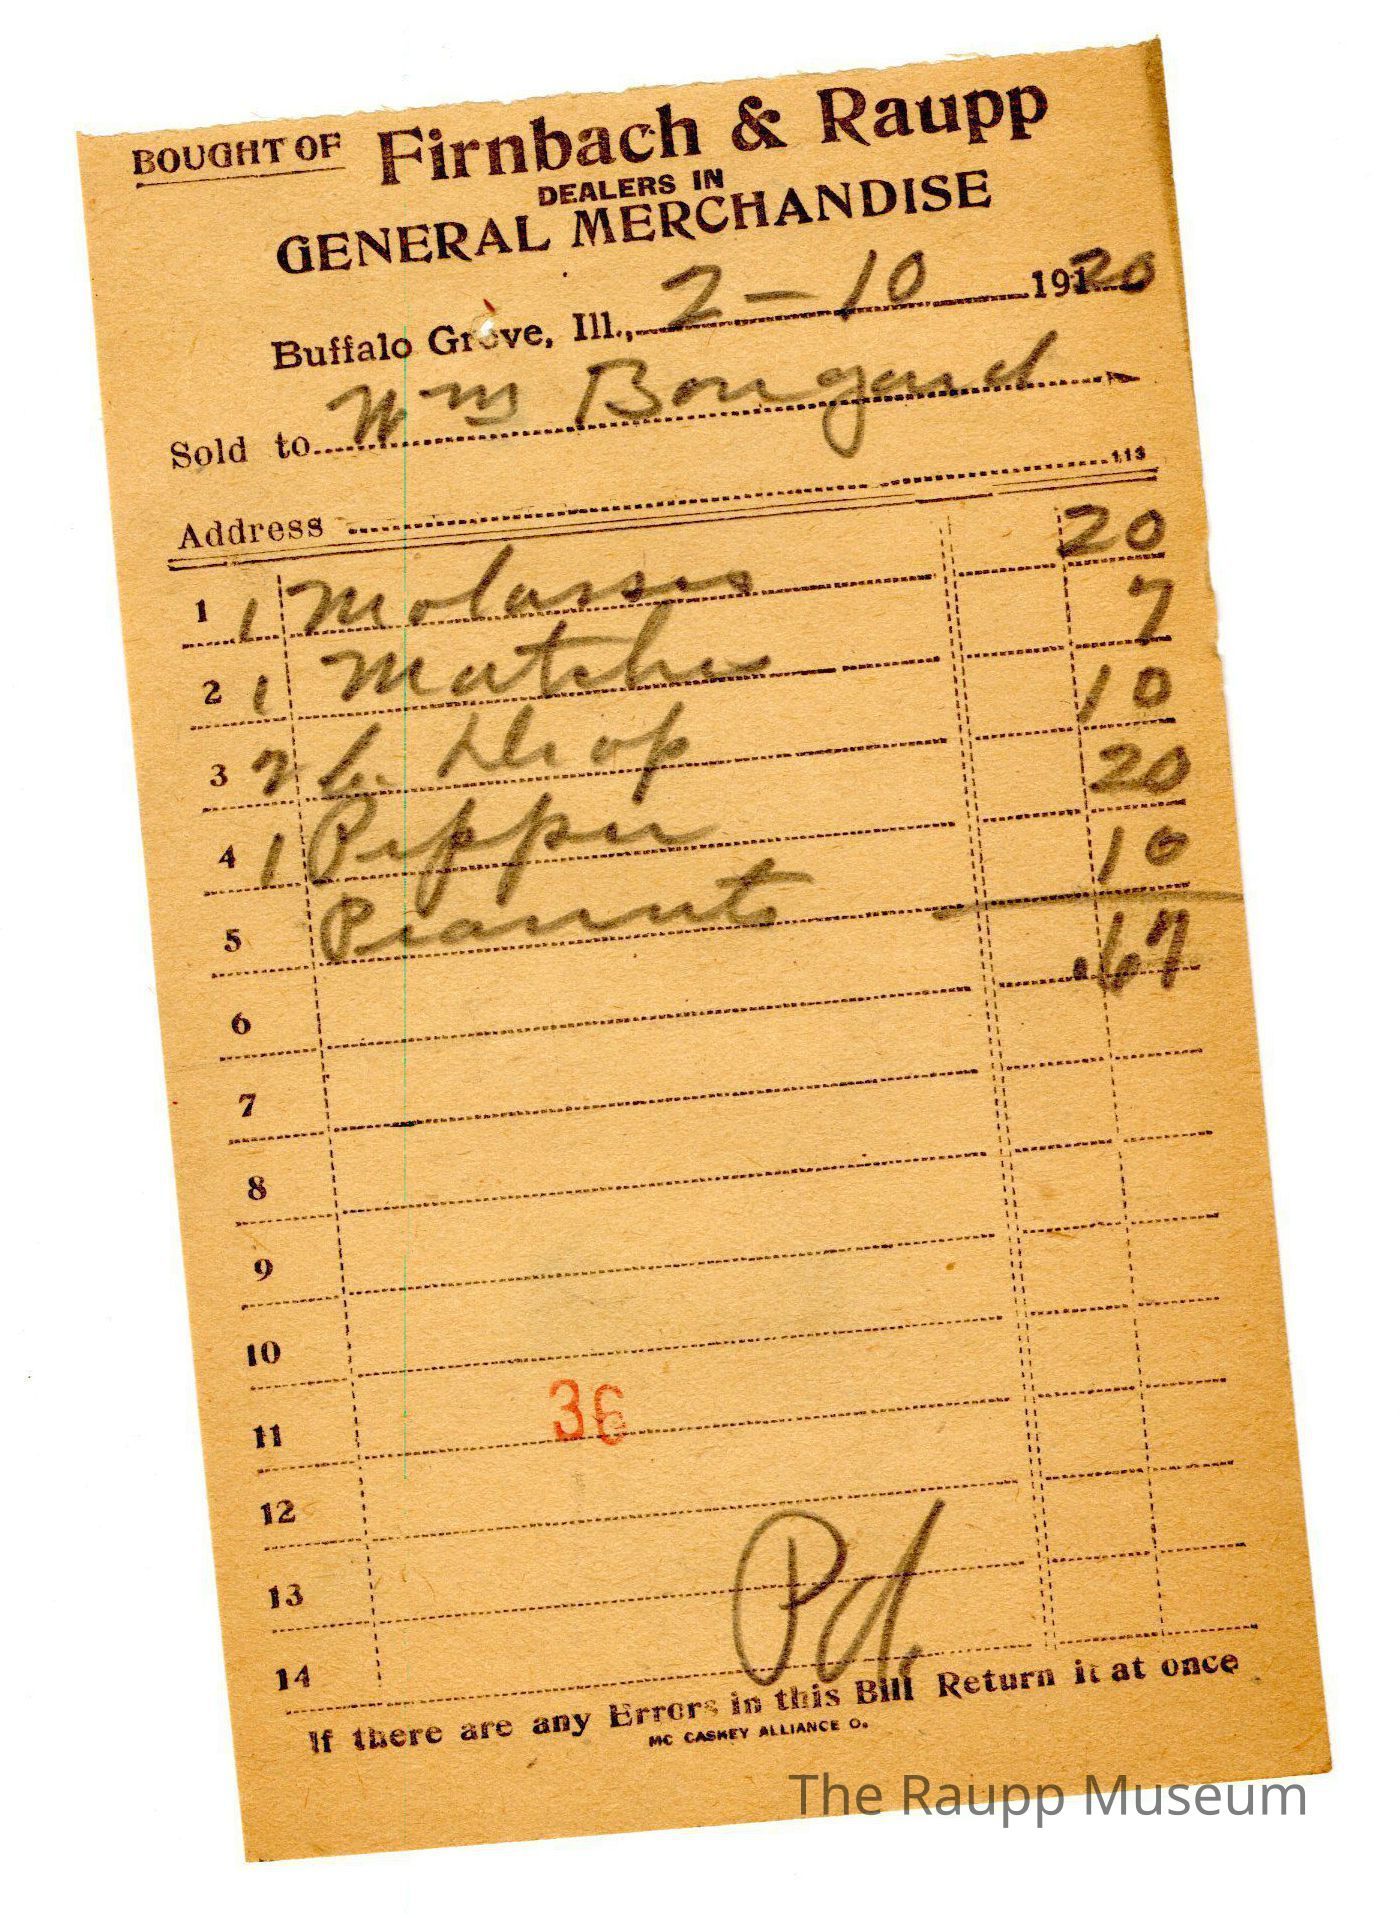 BOUGHT OF Firnbach & Raupp
DEALERS IN
GENERAL MERCHANDISE
Buffalo Grove, Ill., 2-10 19120
Sold to Wm Bongard
113
Address
1 1 Molasses 20
2 1 Matches 7
3 2 C. Drop 10
4 1 Pepper 20
5 Peanuts 10
6 .67
7
8
9
10
11 36
12
13
14 Pd.
If there are any Errors in this Bill Return it at once
MC CASKEY ALLIANCE O.
The Raupp Museum